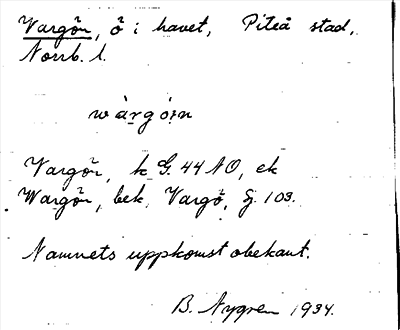 Vargön, ö i havet, Piteå stad,
Norrb. l.
wàrgö́n
Vargön, k G. 44 NO, ek
Wargön, bek. Vargö, Gj 103.
Namnets uppkomst obekant.
B. Nygren 1934.